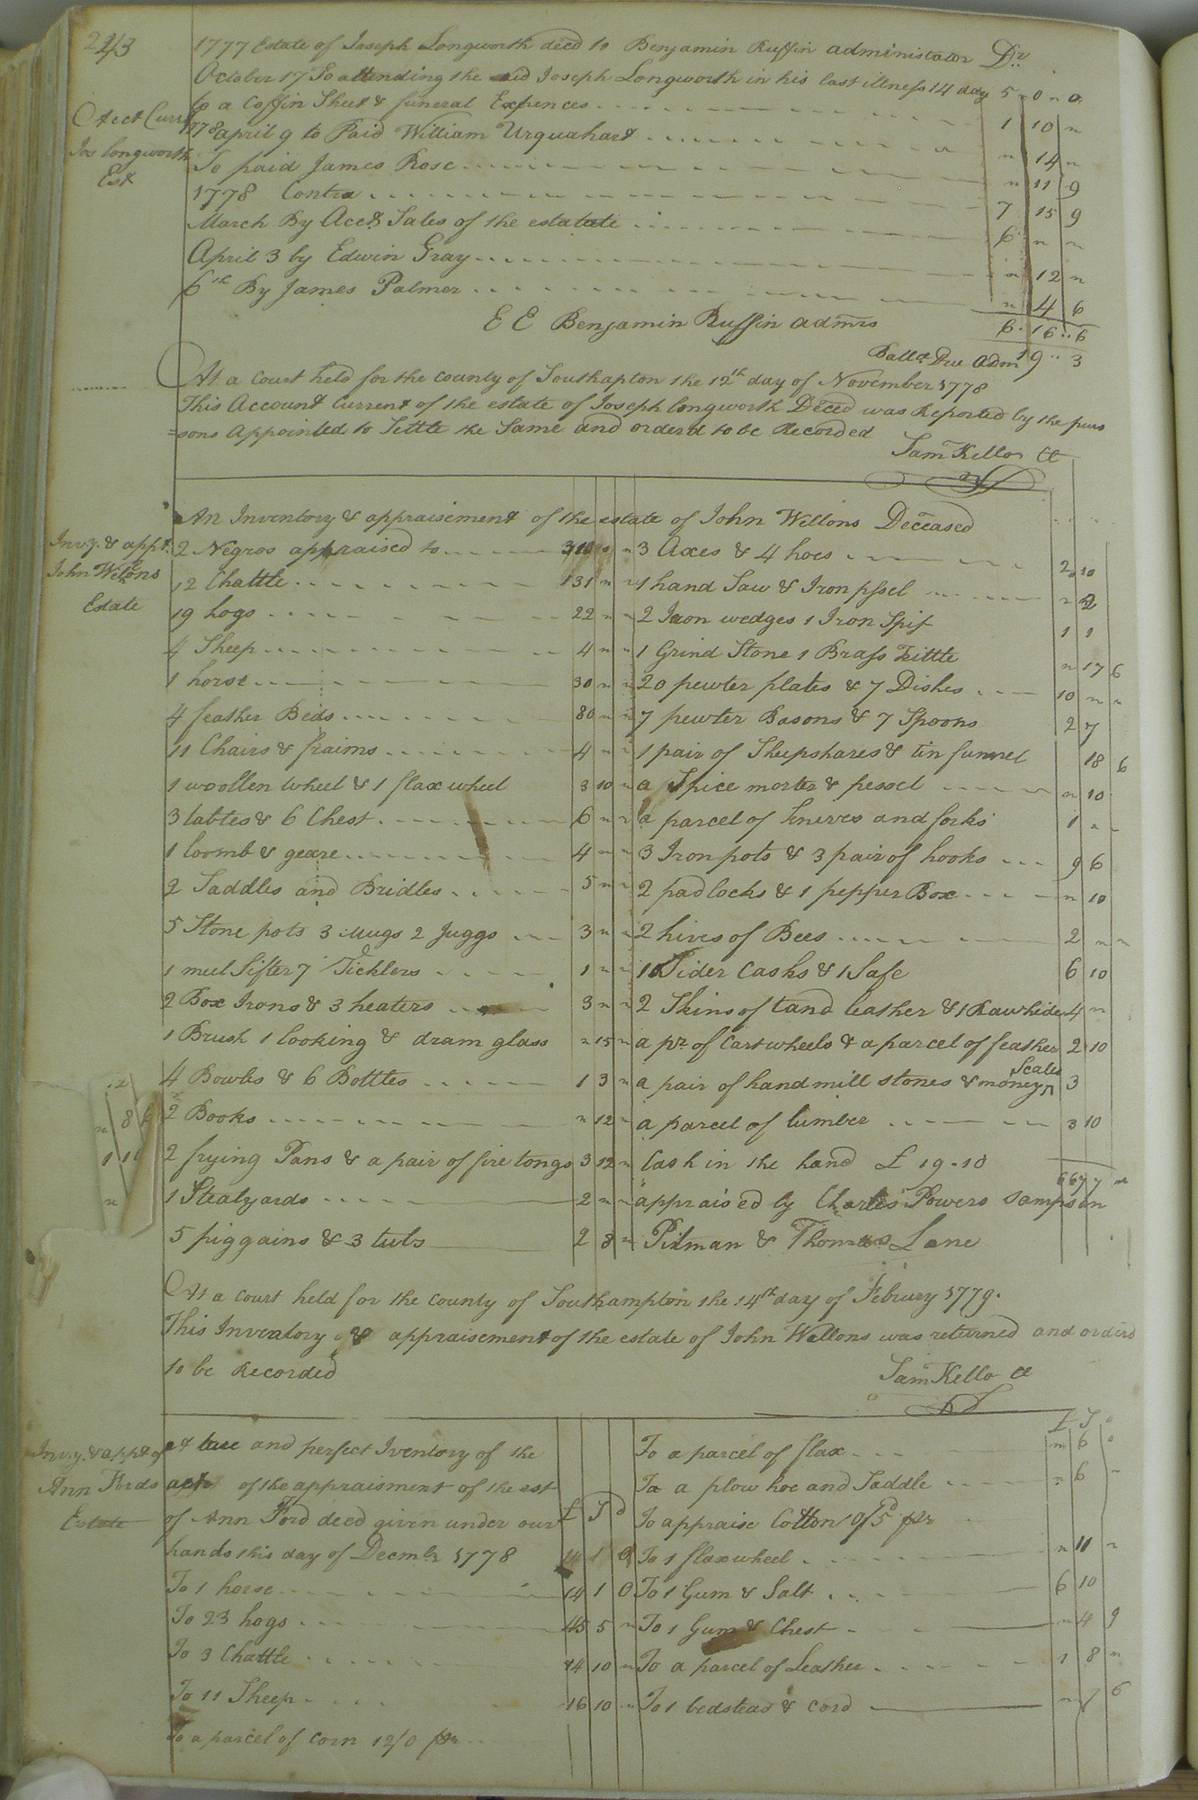 243
1777 Estate of Joseph Longworth deced to Benjamin Ruffin administator Dr
October 17 To attending the said Joseph Longworth in his last illness 14 day 5 " 0 " 0
to a Coffin Sheet & funeral Expences 1 10 "
1778 april 9 to Paid William Urquahart " 14 "
To paid James Rose " 11 9
1778 Contra 7 15 9
March By Acct Sales of the estatate 6 " "
April 3 by Edwin Gray " 12 "
6th By James Palmer " 4 6
E E Benjamin Ruffin admrs 6 16 6
Ballce Due Adm 19 " 3
Acct Curr
Jos longworth
Est
At a court held for the county of Southapton the 12th day of November 1778
This Account Current of the estate of Joseph longworth Deced was Reported by the purs
=sons Appointed to Settle the Same and orderd to be Recorded
Sam Kello Ct
An Inventory & appraisement of the estate of John Wellons Deceased
Invy. & appt.
John Wellons
Estate
2 Negros appraised to 310 " " 3 Axes & 4 hoes 2 10
12 Chattle 131 " " 1 hand Saw & Iron pssel " 2
19 hogs 22 " " 2 Iron wedges 1 Iron Spit 1 1
4 Sheep 4 " " 1 Grind Stone 1 Brass Kittle " 17 6
1 horse 30 " " 20 pewter plates & 7 Dishes 10 " "
4 feather Beds 80 " " 7 pewter Basons & 7 Spoons 2 7
11 Chairs & fraims 4 " " 1 pair of Sheepshares & tin funnel 18 6
1 woollen wheel & 1 flax wheel 3 10 " a Spice morter & pessel " 10
3 tables & 6 Chest 6 " " a parcel of knives and forks 1 " "
1 loomb & geare 4 " " 3 Iron pots & 3 pair of hooks 9 6
2 Saddles and Bridles 5 " " 2 padlocks & 1 pepper Box " 10
5 Stone pots 3 Mugs 2 Juggs 3 " " 2 hives of Bees 2 " "
1 meel Sifter 7 Sicklers 1 " " 10 Sider Casks & 1 Safe 6 10
2 Box Irons & 3 heaters 3 " " 2 Skins of tand leather & 1 Rawhide 4 "
1 Brush 1 looking & dram glass " 15 " a pr. of Cart wheels & a parcel of feather 2 10
4 Bowls & 6 Bottles 1 3 " a pair of hand mill stones & money Scales 3
2 Books " 12 " a parcel of lumber 3 10
2 frying Pans & a pair of fire tongs 3 12 " Cash in the hand £ 19-10
667 7
1 Stealyards 2 " " appraised by Charles Powers Sampson
5 piggains & 3 tubs 2 8 " Pitman & Thomas Lane
At a court held for the county of Southampton the 14th day of Februery 1779.
This Inventory & appraisement of the estate of John Wellons was returned and orderd
to be Recorded
Sam Kello Ct
Invy. & appt of
Ann Fords
Estate
A true and perfect Iventory of the
act of the appraisment of the est
of Ann Ford deced given under our £ S d
hands this day of Decmbr 1778
To 1 horse 14 1 0
To 23 hogs 45 5 "
To 3 Chattle 14 10 "
To 11 Sheep 16 10 "
To a parcel of Corn 12/0 pr
£ S
To a parcel of flax " 6
To a plow hoe and Saddle " 6 "
To appraise Cotton of 5d pr
To 1 flax wheel " 11 "
To 1 Gum & Salt 6 10
To 1 Gum & Chest " 4 9
To a parcel of Leather 1 8 "
To 1 bedstead & cord " 7 6